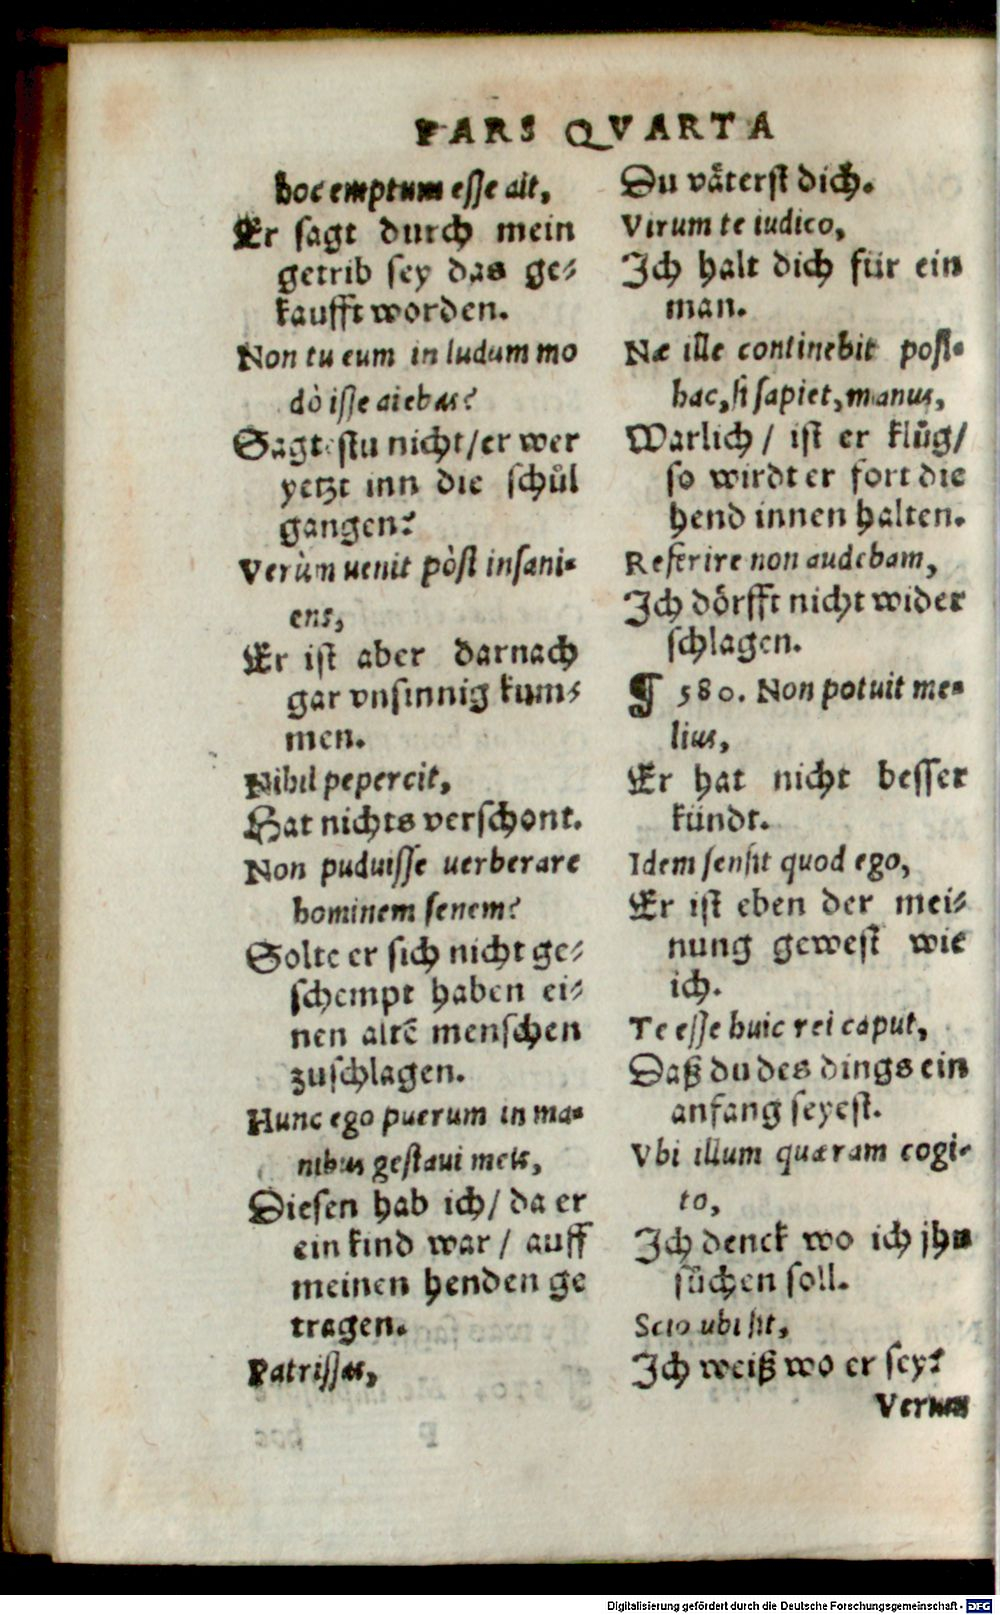 PARS QVARTA
hoc emptum esse ait,
Er sagt durch mein
getrib sey das ge⸗
kaufft worden.
Non tu eum in ludum mo
dò isse aiebas?
Sagtestu nicht/er wer
yetzt inn die schůl
gangen?
Verùm uenit pòst insani-
ens,
Er ist aber darnach
gar vnsinnig kum⸗
men.
Nihil pepercit,
Hat nichts verschont.
Non puduisse uerberare
hominem senem?
Solte er sich nicht ge⸗
schempt haben ei⸗
nen altē menschen
zuschlagen.
Hunc ego puerum in ma-
nibus gestaui meis,
Diesen hab ich/ da er
ein kind war / auff
meinen henden ge
tragen.
Patrissas,
Du väterst dich.
Virum te iudico,
Ich halt dich für ein
man.
Næ ille continebit post-
hac, si sapiet, manus,
Warlich / ist er klůg/
so wirdt er fort die
hend innen halten.
Referire non audebam,
Ich dörfft nicht wider
schlagen.
¶ 580. Non potuit me-
lius,
Er hat nicht besser
kündt.
Idem sensit quod ego,
Er ist eben der mei⸗
nung gewest wie
ich.
Te esse huic rei caput,
Daß du des dings ein
anfang seyest.
Vbi illum quæram cogi-
to,
Ich denck wo ich jhn
sůchen soll.
Scio ubi sit,
Ich weiß wo er sey?
Verum
Digitalisierung gefördert durch die Deutsche Forschungsgemeinschaft - DFG